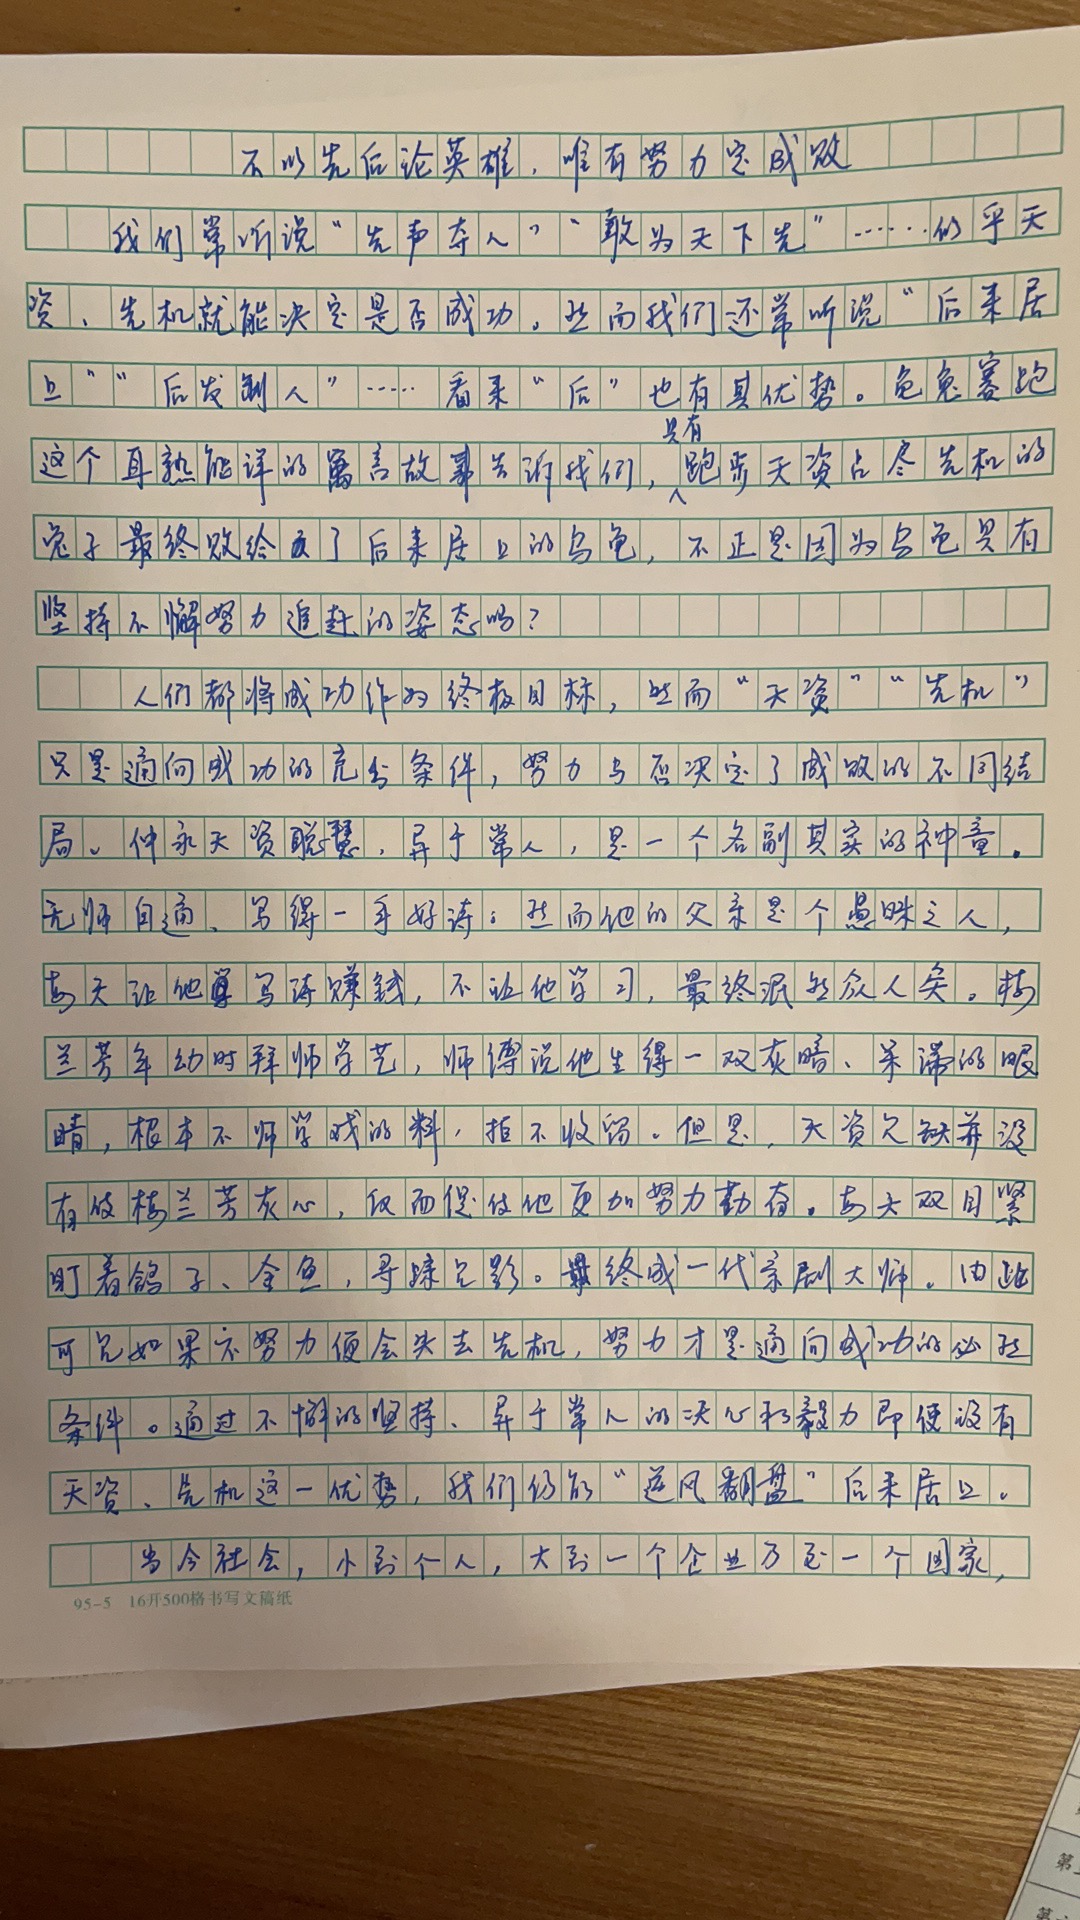 不以先后论英雄，唯有努力定成败
我们常听说“先声夺人”“敢为天下先”……似乎天
资、先机就能决定是否成功。然而我们还常听说“后来居
上”“后发制人”……看来“后”也有其优势。龟兔赛跑
这个耳熟能详的寓言故事告诉我们，具有跑步天资占尽先机的
兔子最终败给了后来居上的乌龟，不正是因为乌龟具有
坚持不懈努力追赶的姿态吗？
人们都将成功作为终极目标，然而“天资”“先机”
只是通向成功的充分条件，努力与否决定了成败的不同结
局。仲永天资聪慧，异于常人，是一个名副其实的神童。
无师自通、写得一手好诗。然而他的父亲是个愚昧之人，
每天让他写诗赚钱，不让他学习，最终泯然众人矣。梅
兰芳年幼时拜师学艺，师傅说他生得一双灰暗、呆滞的眼
睛，根本不师学戏的料，拒不收留。但是，天资欠缺并没
有使梅兰芳灰心，反而促使他更加努力勤奋。每天双目紧
盯着鸽子、金鱼，寻踪觅影。最终成一代京剧大师。由此
可见如果不努力便会失去先机，努力才是通向成功的必然
条件。通过不懈的坚持、异于常人的决心和毅力即使没有
天资、先机这一优势，我们仍能“逆风翻盘”后来居上。
当今社会，小到个人，大到一个企业乃至一个国家，
95-5 16开500格书写文稿纸